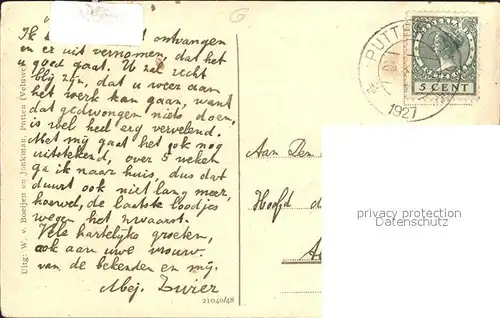 Ik ontvangen
en er uit vernomen, dat het
u goed gaat. U zal recht
blij zijn, dat u weer aan
het werk kan gaan, want
dat gedwongen niets doen,
is wel heel erg vervelend.
Met mij gaat het ook nog
uitstekend, over 5 weken
ga ik naar huis, dus dat
duurt ook niet lang meer,
hoewel, de laatste loodjes
wegen het zwaarst.
Vele hartelijke groeten,
ook aan uwe vrouw.
van de bekenden en mij.
Mej. Zwier
Uitg: W. v. Boeijen en Jonkman, Putten (Veluwe)
21040/48
PUTTE
1927
5 CENT
Aan Den
Hoofd d
privacy protection
Datenschutz